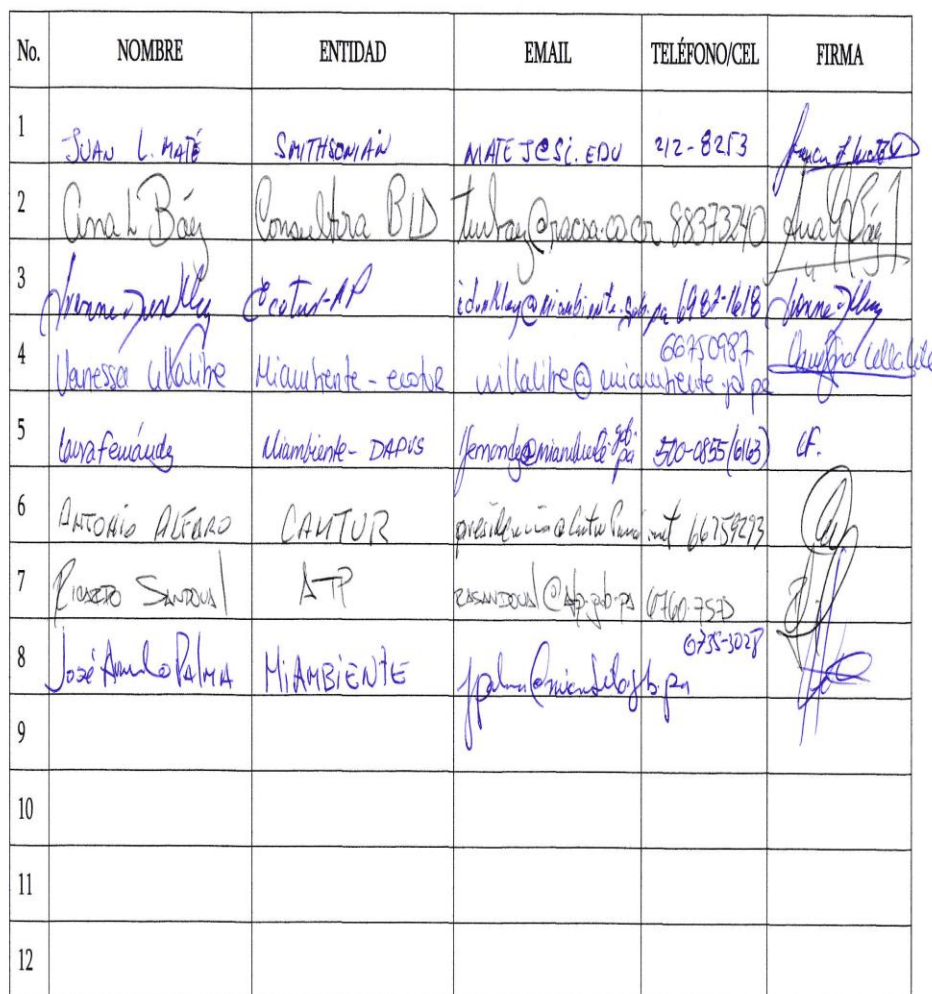 No. NOMBRE ENTIDAD EMAIL TELÉFONO/CEL FIRMA
1 JUAN L. MATÉ SMITHSONIAN MATEJ@SI.EDU 212-8253
2 Ana L Báez Consultora BID turbay@racsa.co.cr 88373240
3 Ivonne Dunkley Ecotur-AP idunkley@miambiente.gob.pa 6987-1618
66750987
4 Vanessa Villalibre Miambiente - ecotur villalibre@miambiente.gob.pa
5 Laura Fernández Miambiente - DAPVS lfernandez@miambiente.gob.pa 500-0855/(6163) LF.
6 ANTONIO ALFARO CAMTUR 66759293
7 RICARDO SANDOVAL ATP rasandoval@atp.gob.pa
6735-3028
8 José PALMA MiAMBiENTE jpalma@miambiente.gob.pa
9
10
11
12